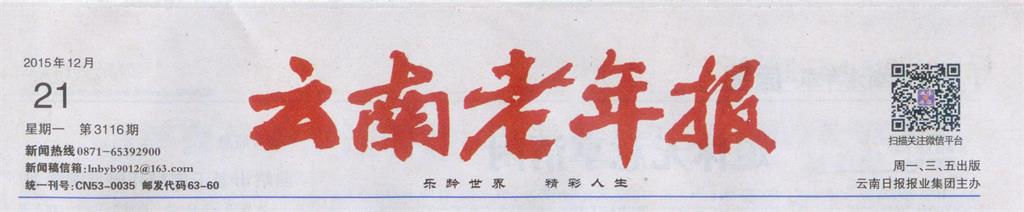 2015年12月
21
星期一 第3116期
新闻热线 0871-65392900
新闻稿信箱:lnbyb9012@163.com
统一刊号:CN53-0035 邮发代码63-60
云南老年报
乐龄世界 精彩人生
扫描关注微信平台
周一、三、五出版
云南日报报业集团主办